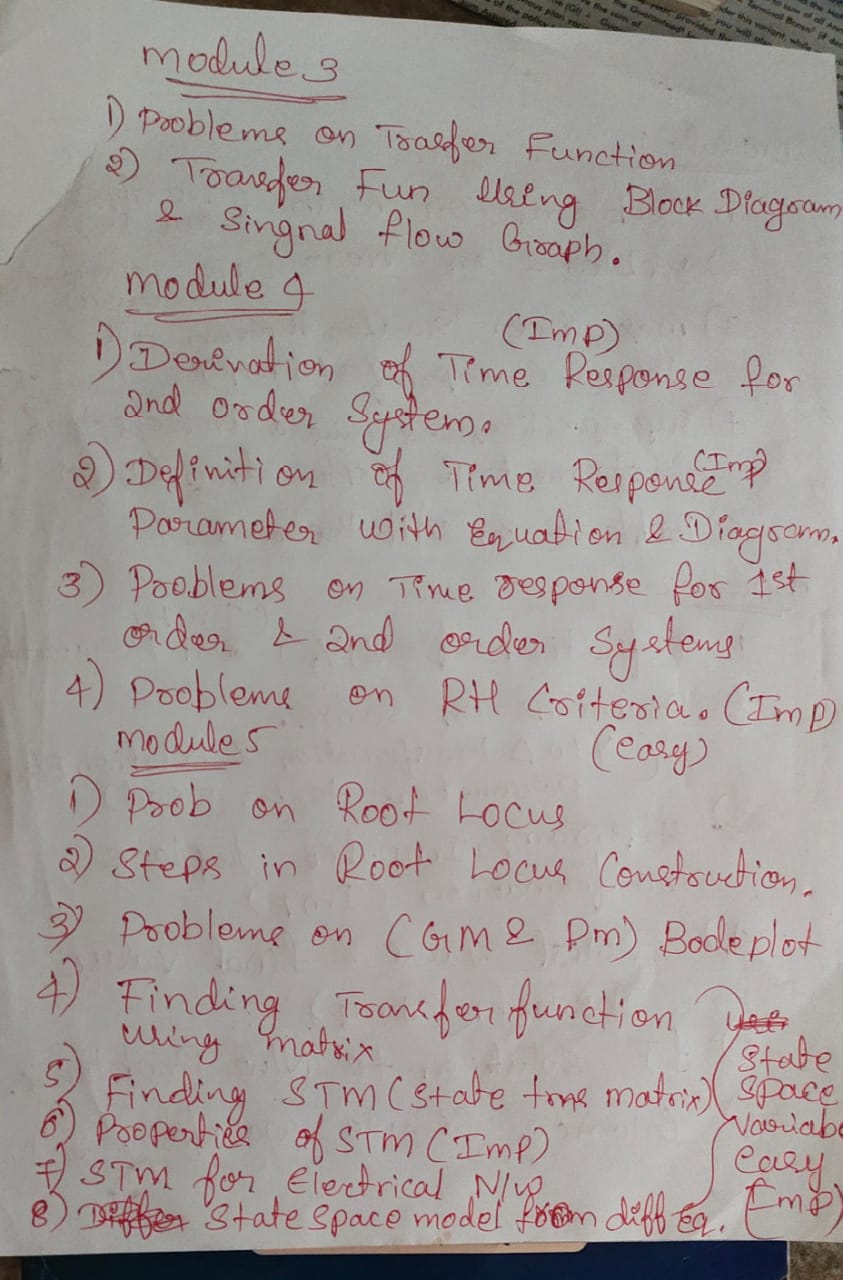 module 3
1) Problems on Trasfer Function
2) Transfer Fun Using Block Diagram
& Singnal flow Graph.
module 4
(Imp)
1) Derivation of Time Response for
2nd order System.
2) Definition of Time Response (Imp)
Parameter with Equation & Diagram.
3) Problems on Time response for 1st
order & 2nd order Systems
4) Problems on RH Criteria. (Imp)
(easy)
module 5
1) Prob on Root Locus
2) Steps in Root Locus Construction.
3) Problems on (GM & Pm) Bode plot
4) Finding Transfer function
using matrix
5) Finding STM (state trns matrix)
6) Properties of STM (Imp)
7) STM for Electrical N/w
8) State space model from diff Eq.
State
space
Variab
easy
Imp)